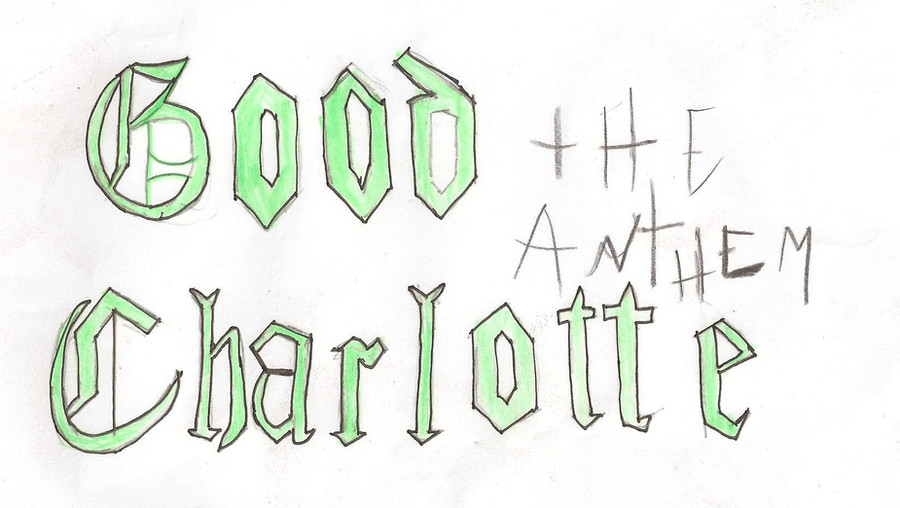 Good
tHE
ANtHEM
Charlotte